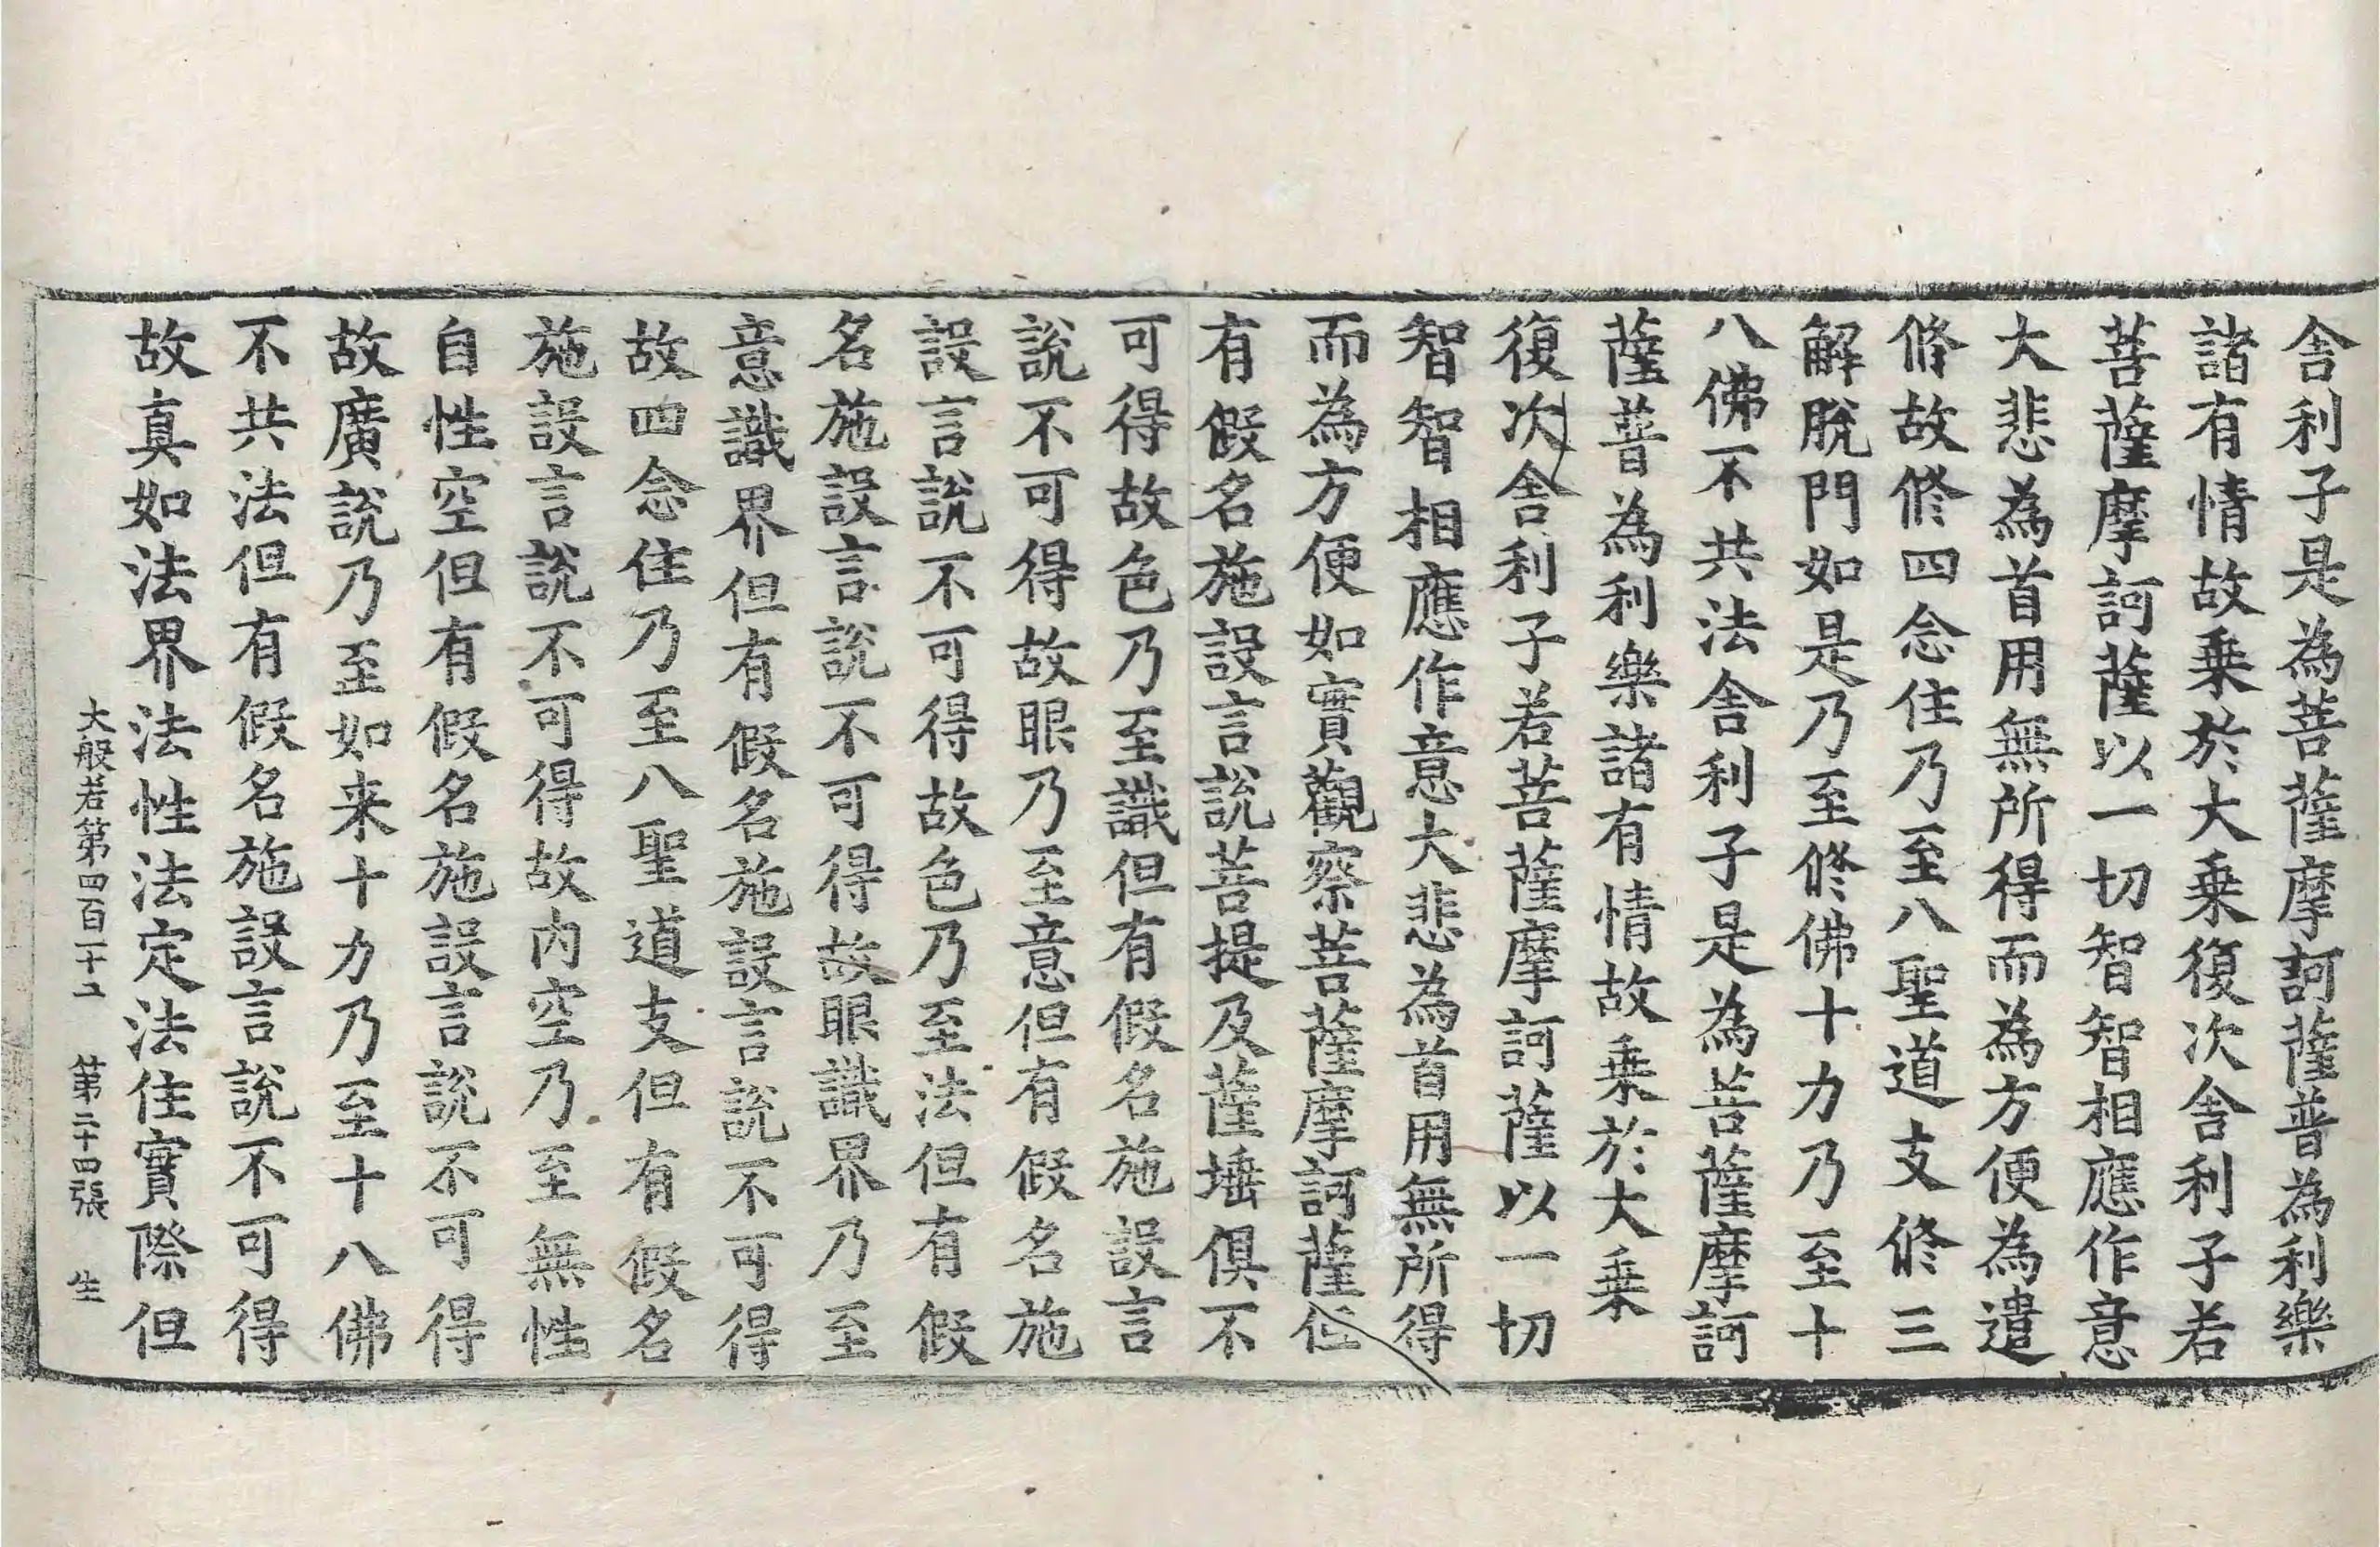 舎利子是為菩薩摩訶薩普為利樂
諸有情故乗於大乗復次舎利子若
菩薩摩訶薩以一切智智相應作意
大悲為首用無所得而為方便為遣
修故修四念住乃至八聖道支修三
解脫門如是乃至修佛十力乃至十
八佛不共法舎利子是為菩薩摩訶
薩普為利樂諸有情故乗於大乗
復次舎利子若菩薩摩訶薩以一切
智智相應作意大悲為首用無所得
而為方便如實觀察菩薩摩訶薩但
有假名施設言說菩提及薩埵俱不
可得故色乃至識但有假名施設言
說不可得故眼乃至意但有假名施
設言說不可得故色乃至法但有假
名施設言說不可得故眼識界乃至
意識界但有假名施設言說不可得
故四念住乃至八聖道支但有假名
施設言說不可得故內空乃至無性
自性空但有假名施設言說不可得
故廣說乃至如来十力乃至十八佛
不共法但有假名施設言說不可得
故真如法界法性法定法住實際但
大般若第四百一十 第二十四張 生